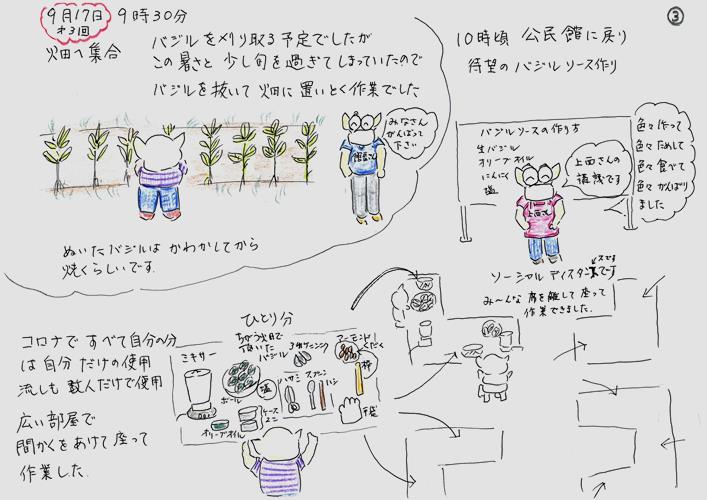 ③
9月17日
オ3回
9時30分
畑へ集合
バジルを刈り取る予定でしたが
この暑さと 少し旬を過ぎてしまっていたので
バジルを抜いて 畑に置いとく作業でした
みなさん
がんばって
下さい
ぬいたバジルは かわかしてから
焼くらしいです.
10時頃 公民館に戻り
待望の バジルソース作り
バジルソースの作り方
生バジル
オリーブオイル
にんにく
塩
上面さんの
講義です
上面さん
色々作って
色々ためして
色々食べて
色々がんばり
ました
ソーシャルディスタンスです
み〜んな 席を離して座って
作業できました.
コロナで すべて自分の分
は自分だけの使用
流しも 数人だけで使用
広い部屋で
間かくをあけて座って
作業した.
ひとり分
ミキサー
ちがう畑で
頂いた
バジル
ボール
塩
オリーブオイル
ケース
2コ
ハサミ
スプーン
ハシ
アーモンド
くだく
棒
手袋